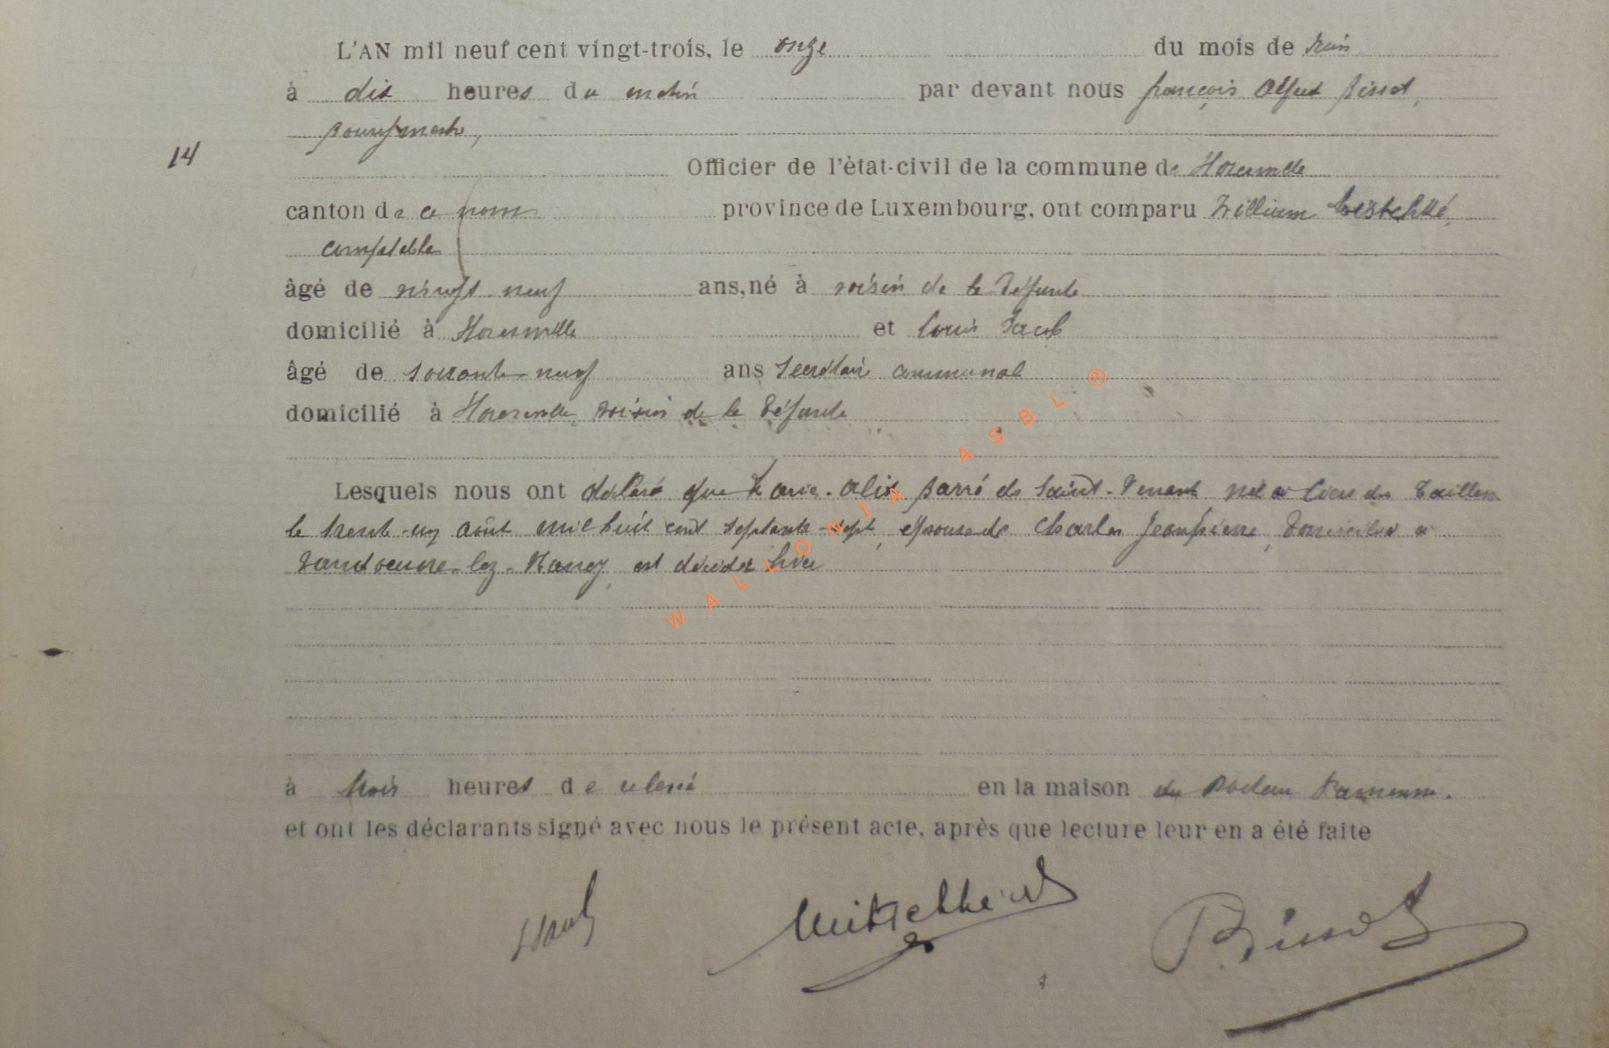 L'AN mil neuf cent vingt-trois, le onze du mois de Juin
à dix heures du matin par devant nous françois Alfred Pissot,
bourgmestre,
14
Officier de l'état-civil de la commune de
canton de ce nom province de Luxembourg, ont comparu William
comptable
âgé de vingt neuf ans, né à voisin de la défunte
domicilié à et Louis Jacob
âgé de soixante-neuf ans Secrétaire communal
domicilié à voisin de la défunte
Lesquels nous ont déclaré que Marie-Alix Barré de Saint-Venant née à
le trente-un août mil huit cent septante-sept, épouse de Charles Jeanpierre, domiciliée à
Vandoeuvre-lez-Nancy, est décédée hier
à trois heures de relevé en la maison du
et ont les déclarants signé avec nous le présent acte, après que lecture leur en a été faite
WALLONIA ASBL ®